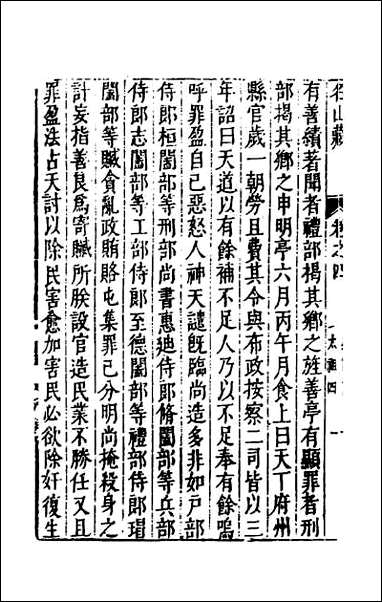 名山藏 卷之四 太祖四 一
有善績著聞者禮部揭其鄉之旌善亭有顯罪者刑
部揭其鄉之申明亭六月丙午月食上曰天下府州
縣官歲一朝勞且費其令與布政按察二司皆以三
年詔曰天道以有餘補不足人乃以不足奉有餘嗚
呼罪盈自己惡怒人神天譴既臨尚造多非如戶部
侍郎桓闔部等刑部尚書惠迪侍郎脩闔部等兵部
侍郎志闔部等工部侍郎至德闔部等禮部侍郎瑁
闔部等贓貪亂政賄賂屯集罪己分明尚掩殺身之
計妄指善良爲寄贓所朕設官造民業不勝任又且
罪盈法占天討以除民害愈加害民必欲除奸復生